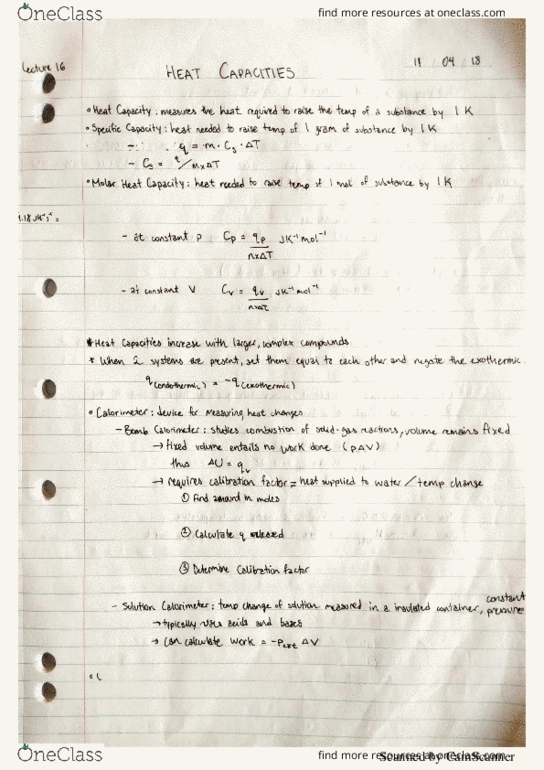 OneClass
find more resources at oneclass.com
Lecture 16
11 04 18
HEAT CAPACITIES
• Heat Capacity: measures the heat required to raise the temp of a substance by 1 K
• Specific Capacity: heat needed to raise temp of 1 gram of substance by 1 K
- q = m · Cs · ΔT
- Cs = q/m×ΔT
• Molar Heat Capacity: heat needed to raise temp of 1 mol of substance by 1 K
- at constant p Cp = qp/n×ΔT JK⁻¹mol⁻¹
- at constant V Cv = qv/n×ΔT JK⁻¹mol⁻¹
* Heat Capacities increase with larger, complex compounds
* When 2 systems are present, set them equal to each other and negate the exothermic.
q(endothermic) = -q(exothermic)
• Calorimeter: device for measuring heat changes
- Bomb Calorimeter: studies combustion of solid-gas reactions, volume remains fixed
→ fixed volume entails no work done (pΔV)
thus ΔU = qv
→ requires calibration factor = heat supplied to water / temp change
① Find amount in moles
② Calculate q released
③ Determine Calibration factor
- Solution Calorimeter: temp change of solution measured in a insulated container, constant pressure
→ typically uses acids and bases
→ can calculate work = -Pext ΔV
OneClass
find more resources at oneclass.com
Scanned by CamScanner